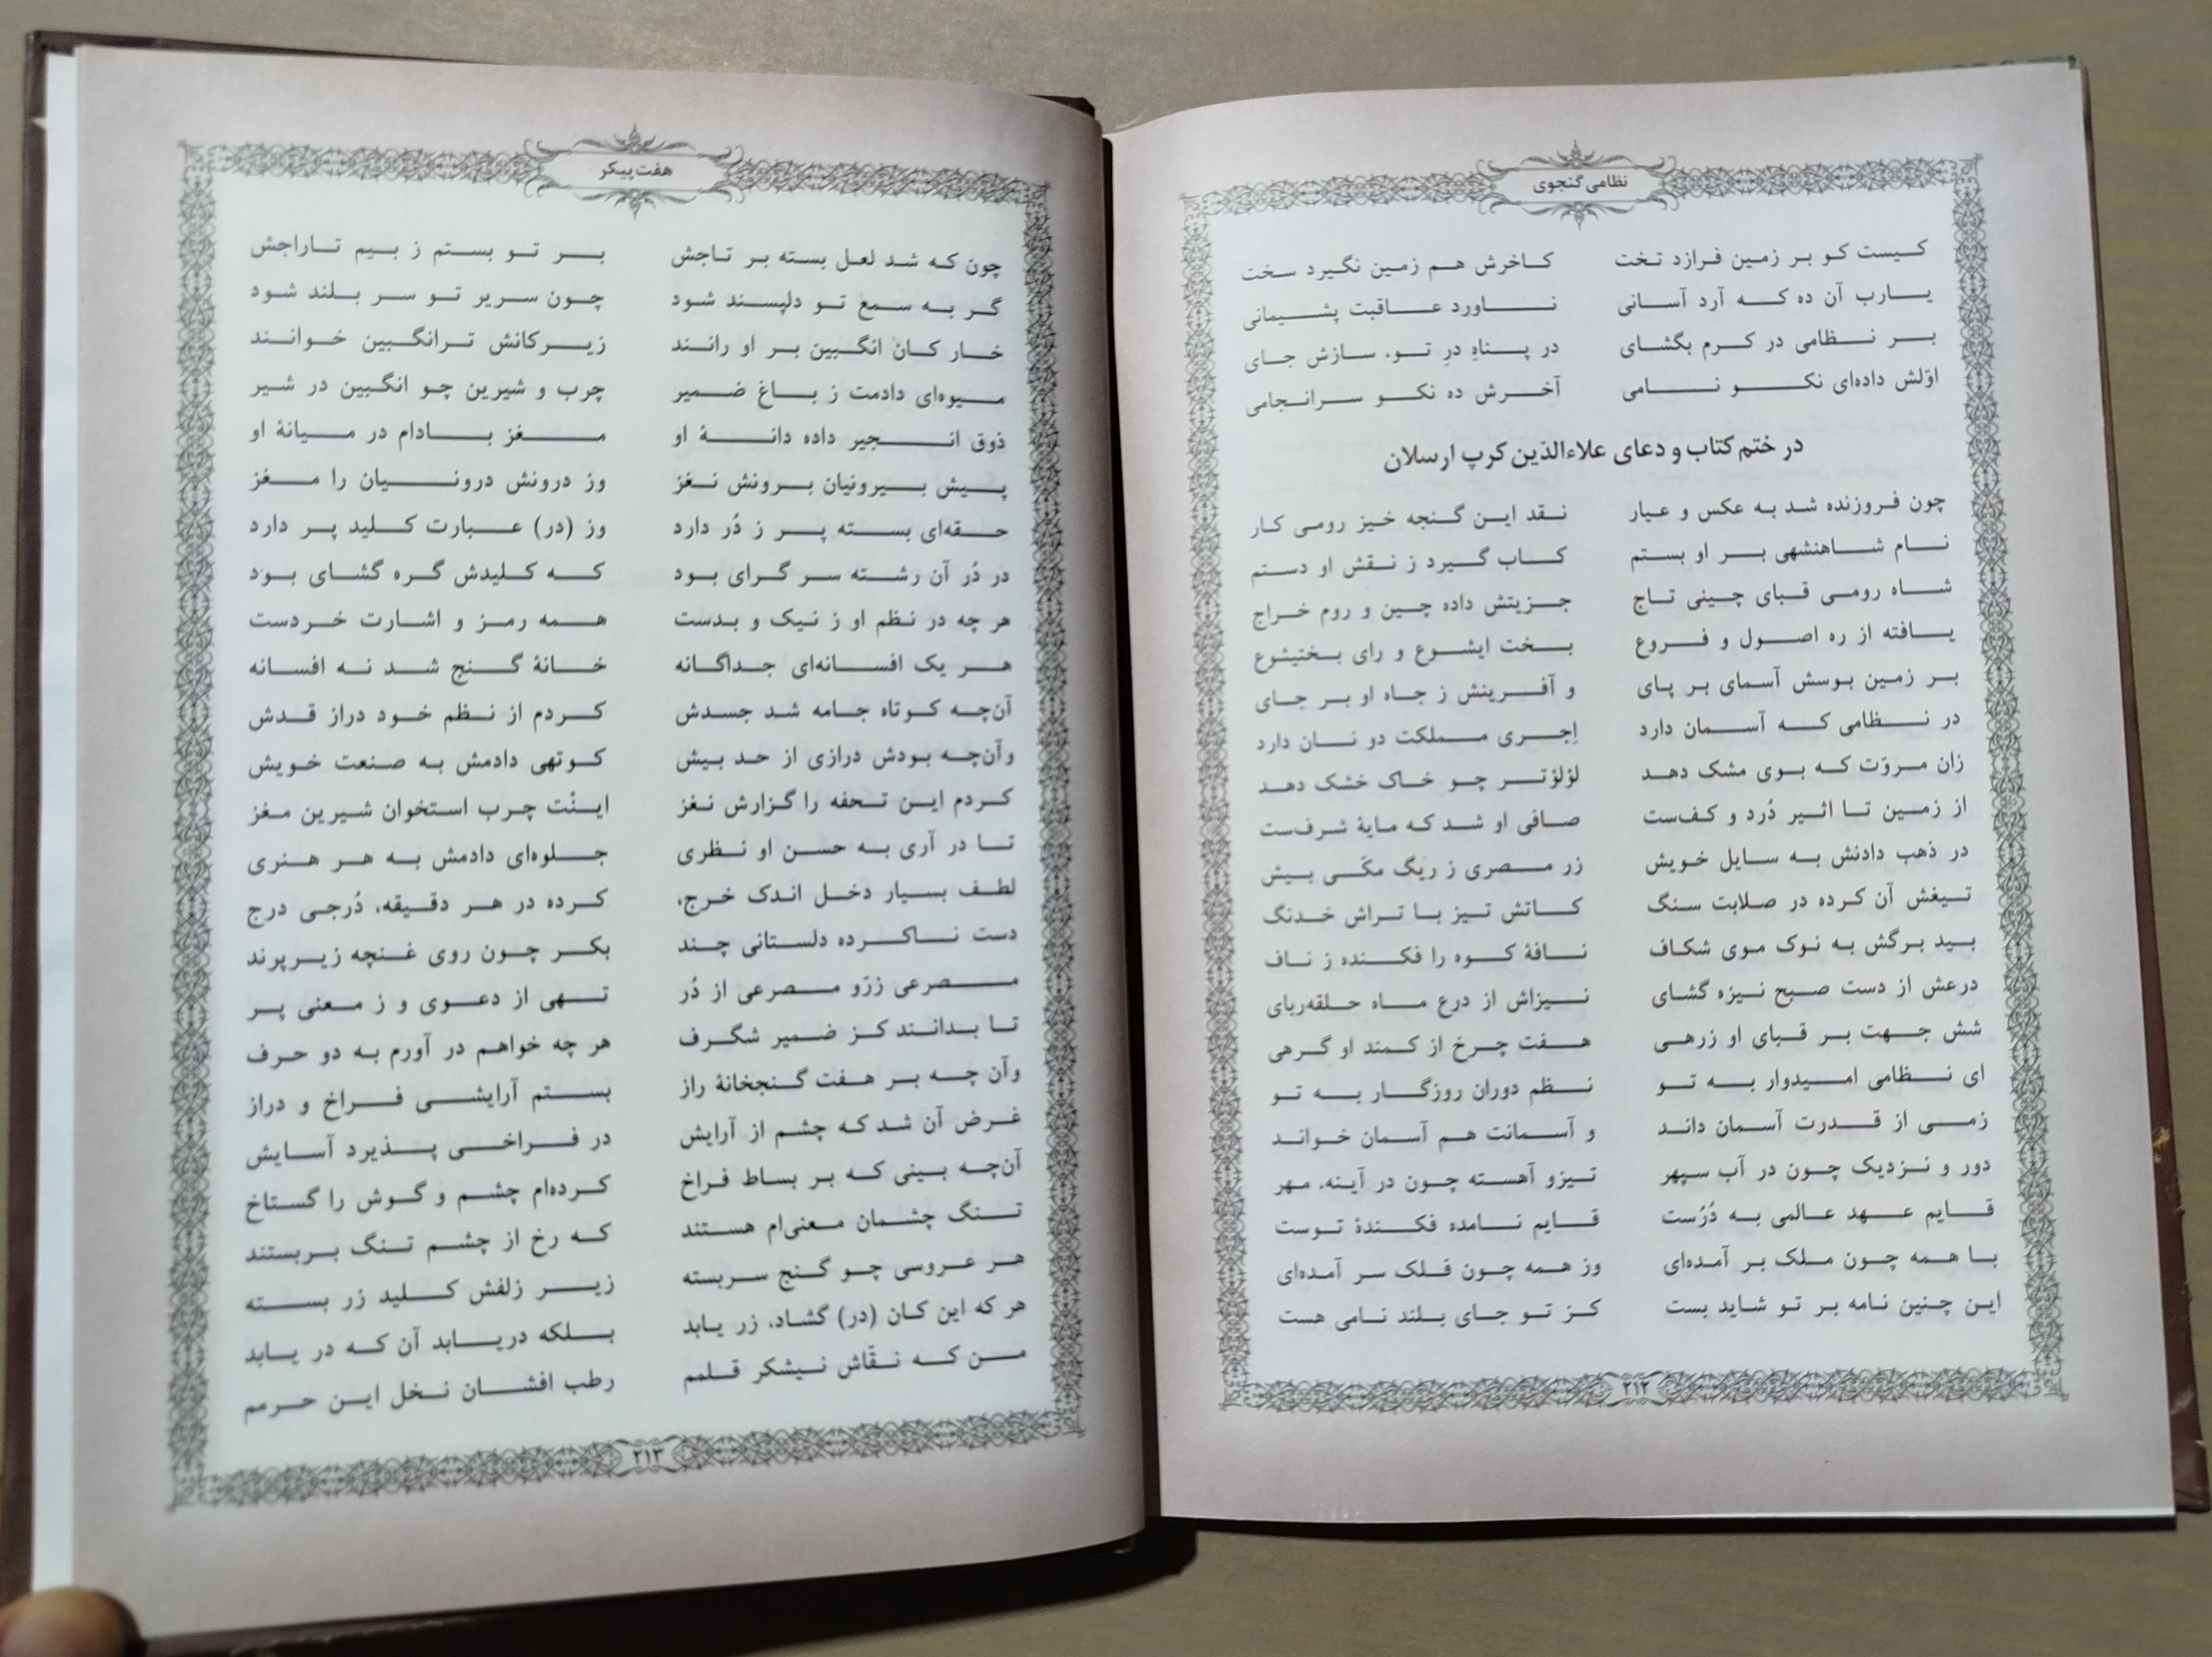 نظامی گنجوی
کیست کو بر زمین فرازد تخت کاخرش هم زمین نگیرد سخت
یارب آن ده که آرد آسانی ناورد عاقبت پشیمانی
بر نظامی در کرم بگشای در پناهِ درِ تو، سازش جای
اوّلش داده‌ای نکو نامی آخرش ده نکو سرانجامی
در ختم کتاب و دعای علاءالدّین کرپ ارسلان
چون فروزنده شد به عکس و عیار نقد این گنجه خیز رومی کار
نام شاهنشهی بر او بستم کاب گیرد ز نقش او دستم
شاه رومی قبای چینی تاج جزیتش داده چین و روم خراج
یافته از ره اصول و فروع بخت ایشوع و رای بختیشوع
بر زمین بوسش آسمای بر پای و آفرینش ز جاه او بر جای
در نظامی که آسمان دارد اِجری مملکت دو نان دارد
زان مروّت که بوی مشک دهد لؤلؤتر چو خاک خشک دهد
از زمین تا اثیر دُرد و کف‌ست صافی او شد که مایهٔ شرف‌ست
در ذهب دادنش به سایل خویش زر مصری ز ریگ مکّی بیش
تیغش آن کرده در صلابت سنگ کاتش تیز با تراش خدنگ
بید برگش به نوک موی شکاف نافهٔ کوه را فکنده ز ناف
درعش از دست صبح نیزه گشای نیزاش از درع ماه حلقه‌ربای
شش جهت بر قبای او زرهی هفت چرخ از کمند او گرهی
ای نظامی امیدوار به تو نظم دوران روزگار به تو
زمی از قدرت آسمان داند و آسمانت هم آسمان خواند
دور و نزدیک چون در آب سپهر تیزو آهسته چون در آینه، مهر
قایم عهد عالمی به دُرُست قایم نامده فکندهٔ توست
با همه چون ملک بر آمده‌ای وز همه چون فلک سر آمده‌ای
این چنین نامه بر تو شاید بست کز تو جای بلند نامی هست
۲۱۲
هفت پیکر
چون که شد لعل بسته بر تاجش بر تو بستم ز بیم تاراجش
گر به سمع تو دلپسند شود چون سریر تو سر بلند شود
خار کان انگبین بر او رانند زیرکانش ترانگبین خوانند
میوه‌ای دادمت ز باغ ضمیر چرب و شیرین چو انگبین در شیر
ذوق انجیر داده دانهٔ او مغز بادام در میانهٔ او
پیش بیرونیان برونش نغز وز درونش درونیان را مغز
حقه‌ای بسته پر ز دُر دارد وز (در) عبارت کلید پر دارد
در دُر آن رشته سر گرای بود که کلیدش گره گشای بود
هر چه در نظم او ز نیک و بدست همه رمز و اشارت خردست
هر یک افسانه‌ای جداگانه خانهٔ گنج شد نه افسانه
آن‌چه کوتاه جامه شد جسدش کردم از نظم خود دراز قدش
وآن‌چه بودش درازی از حد بیش کوتهی دادمش به صنعت خویش
کردم این تحفه را گزارش نغز اینْت چرب استخوان شیرین مغز
تا در آری به حسن او نظری جلوه‌ای دادمش به هر هنری
لطف بسیار دخل اندک خرج، کرده در هر دقیقه، دُرجی درج
دست ناکرده دلستانی چند بکر چون روی غنچه زیرپرند
مصرعی زرّو مصرعی از دُر تهی از دعوی و ز معنی پر
تا بدانند کز ضمیر شگرف هر چه خواهم در آورم به دو حرف
وآن چه بر هفت گنجخانهٔ راز بستم آرایشی فراخ و دراز
غرض آن شد که چشم از آرایش در فراخی پذیرد آسایش
آن‌چه بینی که بر بساط فراخ کرده‌ام چشم و گوش را گستاخ
تنگ چشمان معنی‌ام هستند که رخ از چشم تنگ بربستند
هر عروسی چو گنج سربسته زیر زلفش کلید زر بسته
هر که این کان (در) گشاد، زر یابد بلکه دریابد آن که در یابد
من که نقّاش نیشکر قلمم رطب افشان نخل این حرمم
۲۱۳